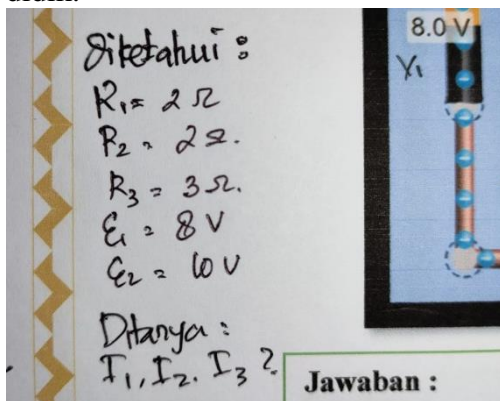 Diketahui :
R₁ = 2 Ω
R₂ = 2 Ω.
R₃ = 3 Ω.
ε₁ = 8 V
ε₂ = 10 V
Ditanya :
I₁, I₂. I₃ ?
8.0 V
V₁
Jawaban :